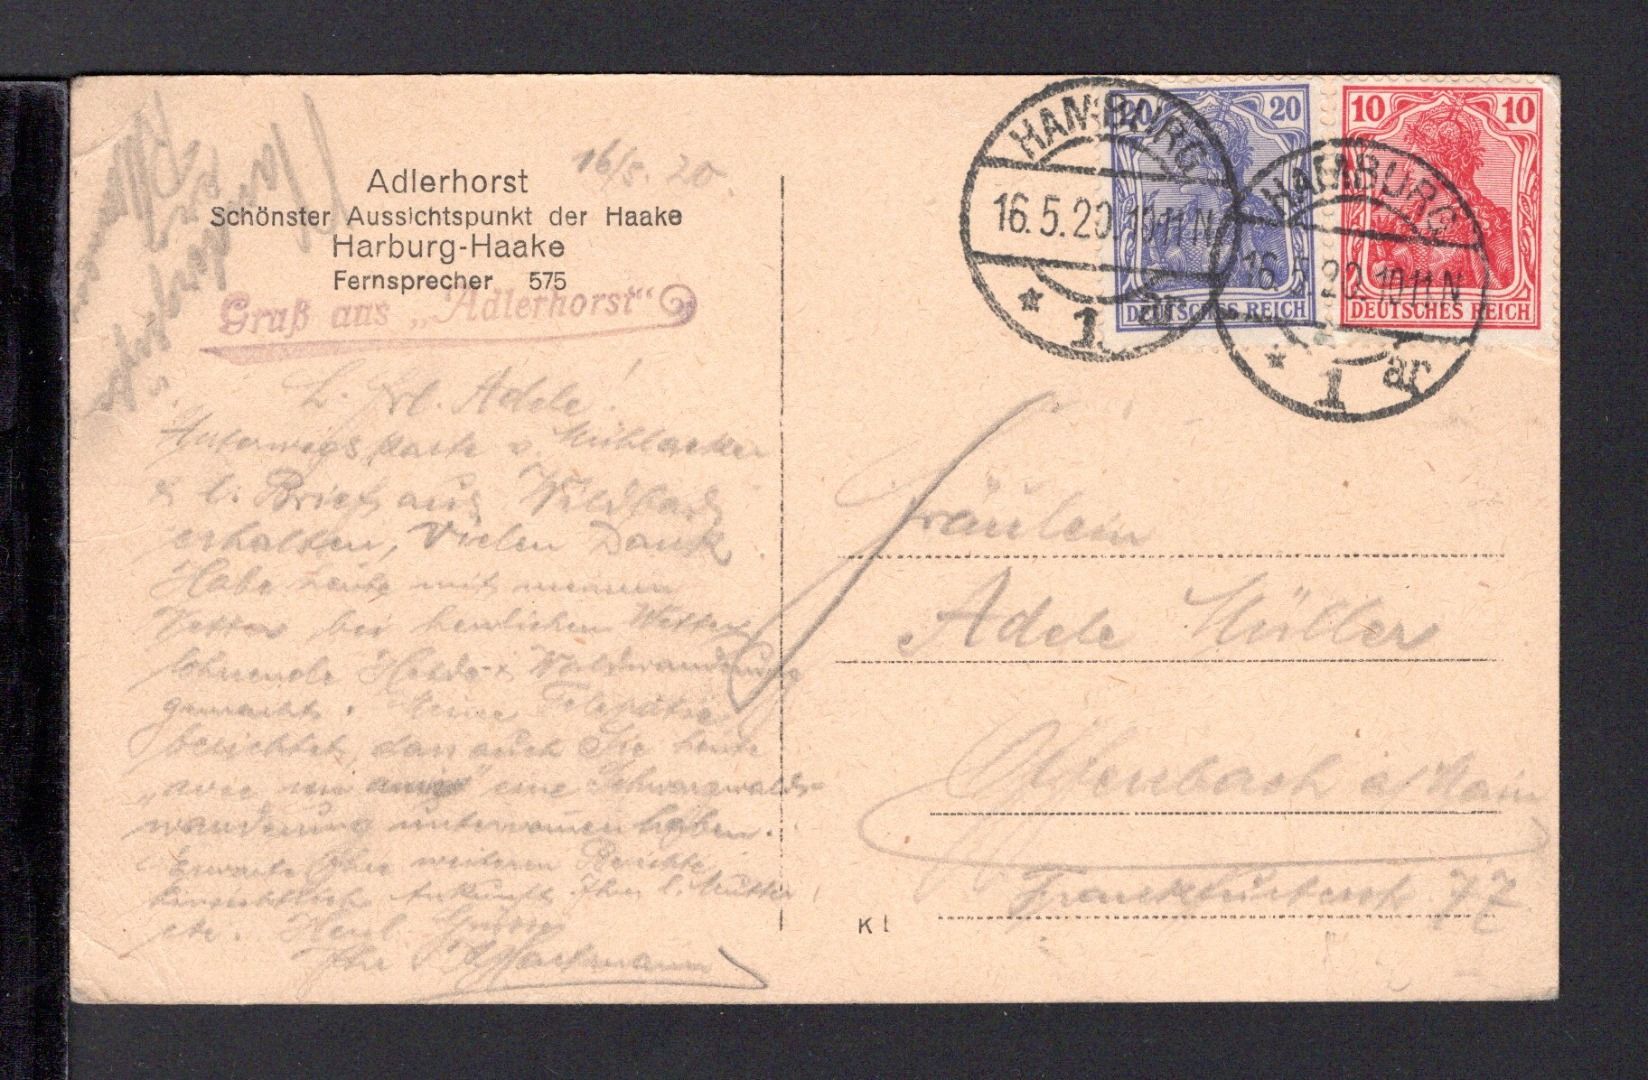 16/5. 20.
Adlerhorst
Schönster Aussichtspunkt der Haake
Harburg-Haake
Fernsprecher 575
Gruß aus „Adlerhorst“
L. Frl. Adele!
Unterwegs Karte v. Mühlacker
& l. Brief aus Wildbad
erhalten, Vielen Dank.
Habe heute mit meinem
Vetter bei herrlichem Wetter
lohnende Heide- & Waldwanderung
gemacht. Meine
berichtet, dass auch Sie heute
„avec un eine Schwarzwald-
wanderung unternommen haben.
Erwarte Ihre weiteren Berichte
hinsichtlich Ankunft Ihrer l. Mutter
etc. Herzl. Grüsse
Ihr
HAMBURG
16.5.20.10-11N
* 1 ar
HAMBURG
16.5.20.10-11N
* 1 ar
20 20
DEUTSCHES REICH
10 10
DEUTSCHES REICH
Fräulein
Adele Müller
Offenbach a/Main
Frankfurterstr. 77
K I